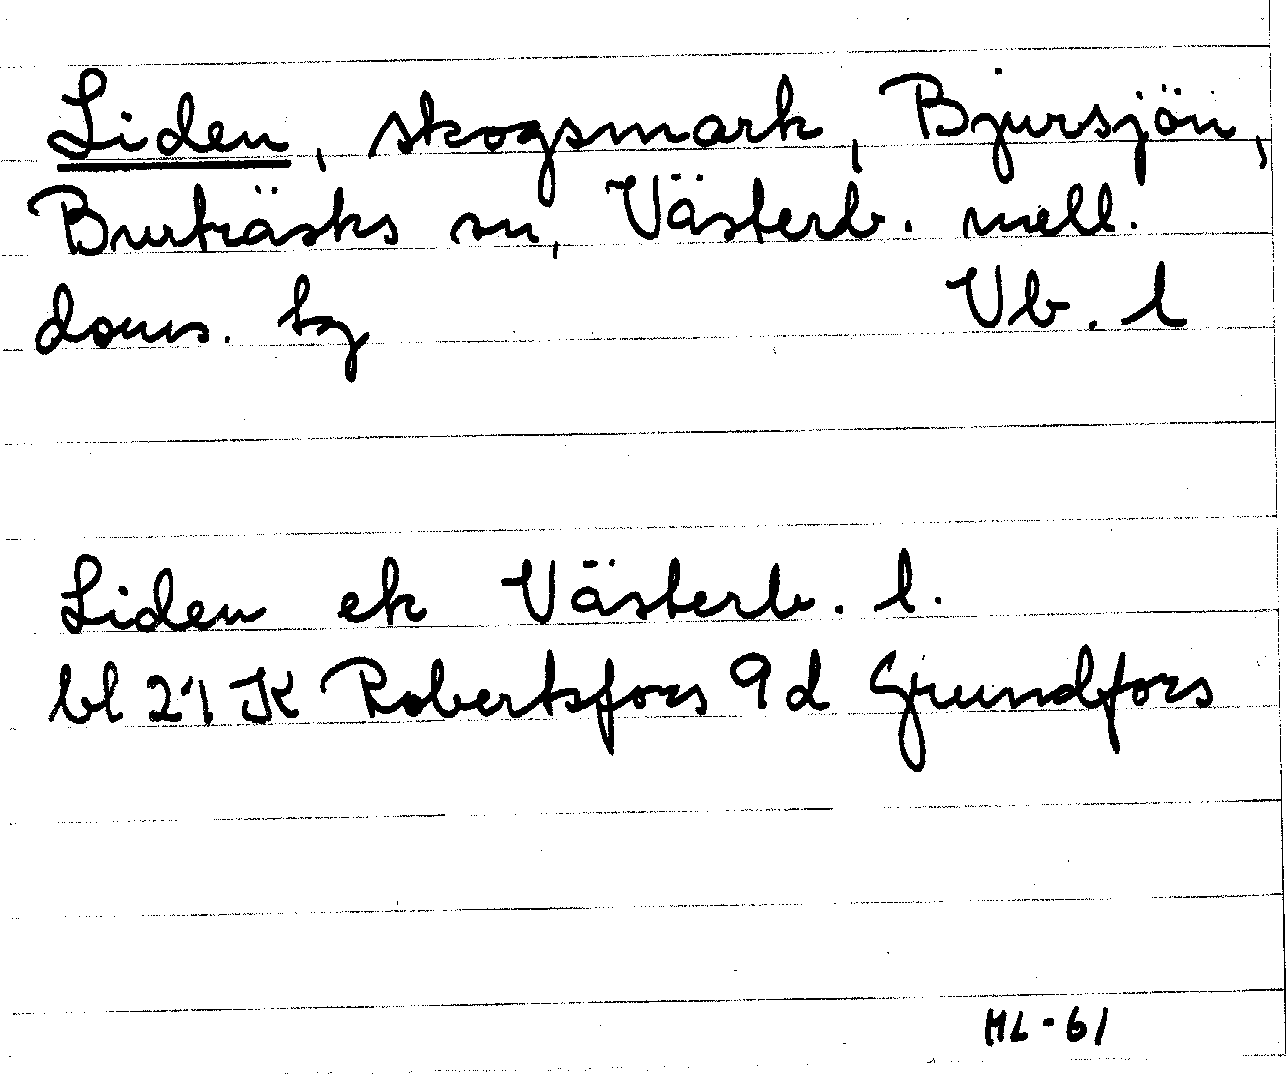 Liden, skogsmark, Bjursjön,
Burträsks sn, Västerb. mell.
doms. tg Vb. l
Liden ek Västerb. l.
bl 21 K Robertsfors 9d Grundfors
ML-61